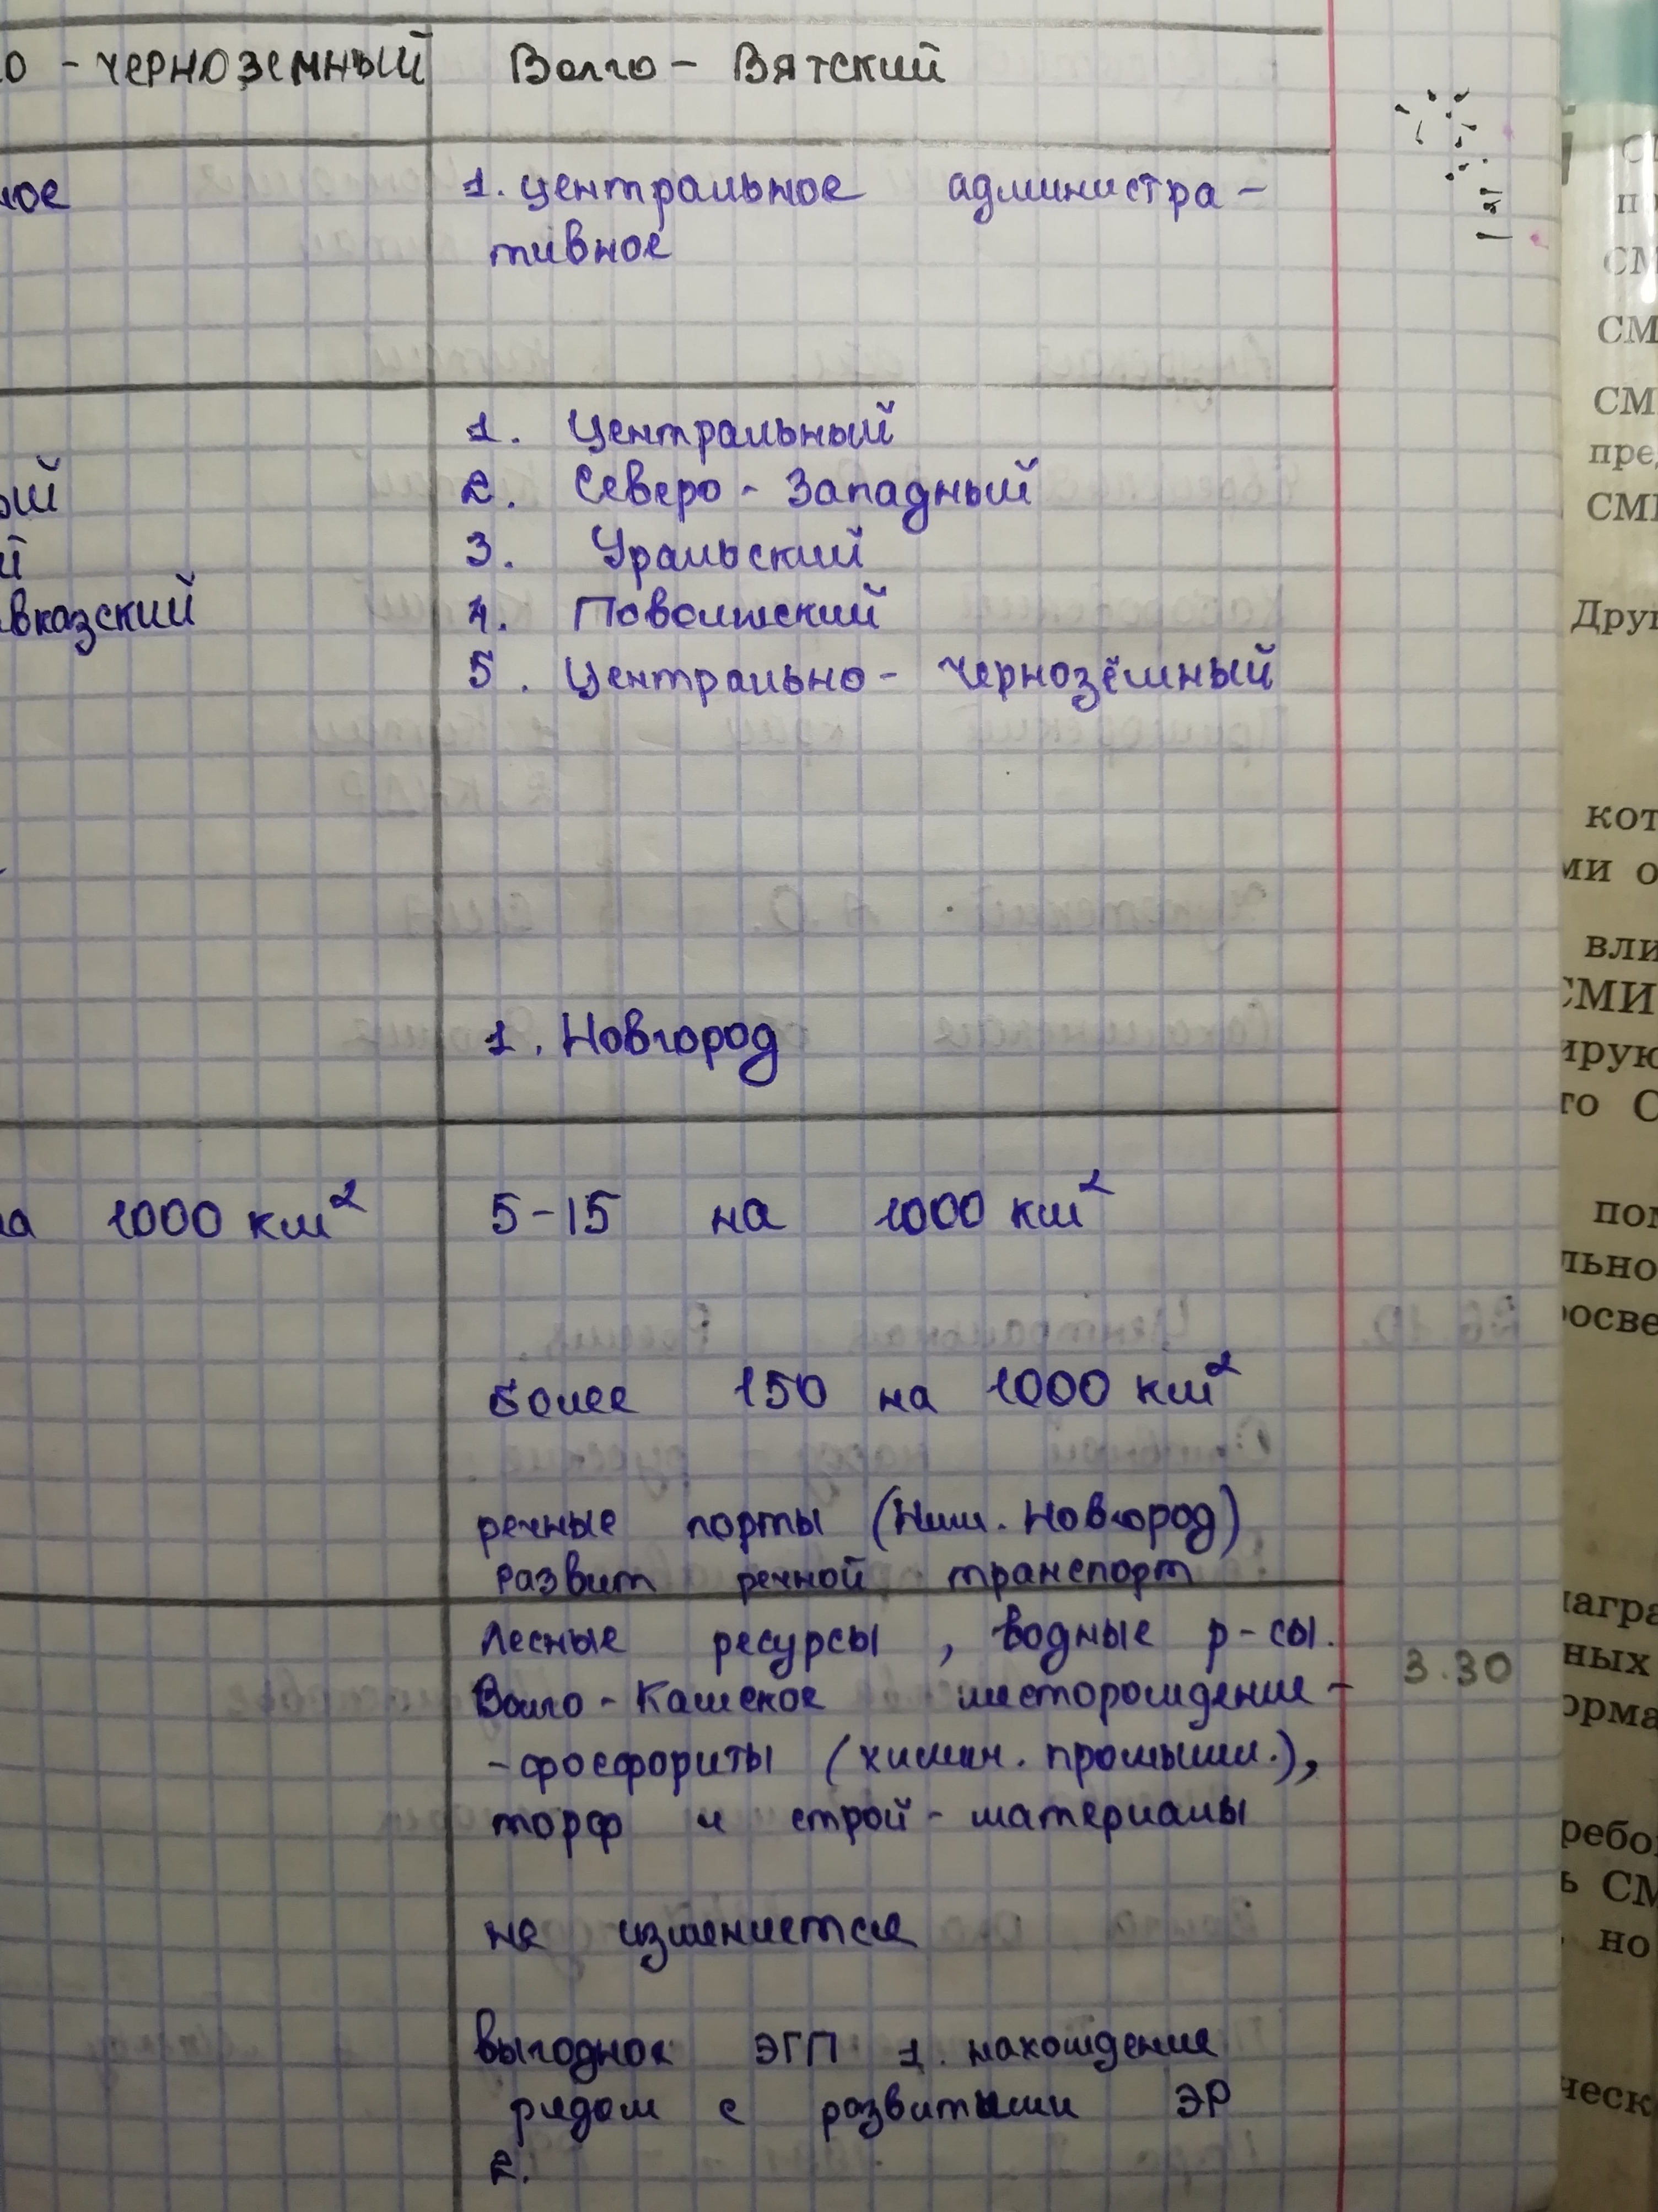 о - черноземный Волго - Вятский
ное 1. центральное администра -
тивное
1. Центральный
ый 2. Северо - Западный
ий 3. Уральский
авказский 4. Поволжский
5. Центрально - Чернозёмный
1. Новгород
на 1000 км² 5-15 на 1000 км²
более 150 на 1000 км²
речные порты (Ниж. Новгород)
развит речной транспорт
Лесные ресурсы , водные р-сы.
Волго - Камское месторождение - 3.30
-фосфориты (химич. промышл.),
торф и строй - материалы
не изменяется
выгодное ЭГП 1. нахождение
рядом с развитыми ЭР
2.
СМ
СМ
СМ
пре
СМИ
Друг
кот
ми о
вли
СМИ
ирую
го С
пом
льно
осве
награ
ных
орма
ребо
ь СМ
но
ческ